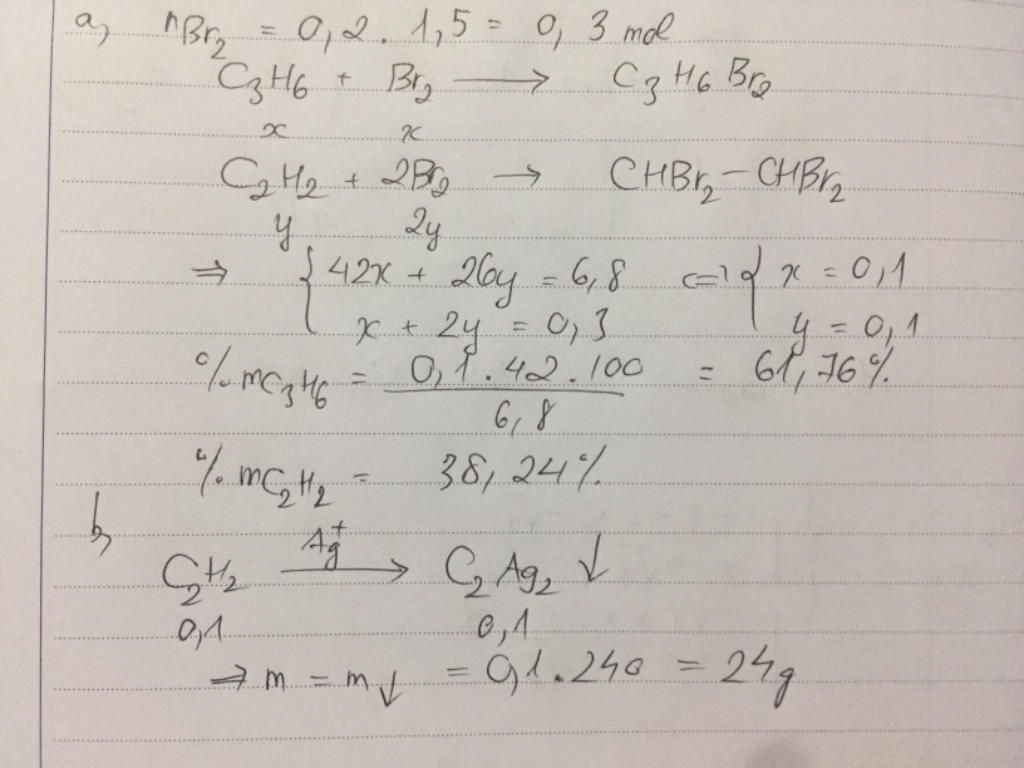 a, nBr2 = 0,2 . 1,5 = 0,3 mol
C3H6 + Br2 → C3H6Br2
x x
C2H2 + 2Br2 → CHBr2 - CHBr2
y 2y
⇒ { 42x + 26y = 6,8 <=> { x = 0,1
x + 2y = 0,3 y = 0,1
% mC3H6 = 0,1 . 42 . 100 = 61,76%
6,8
% mC2H2 = 38,24%
b,
Ag+
C2H2 → C2Ag2 ↓
0,1 0,1
⇒ m = m↓ = 0,1 . 240 = 24g